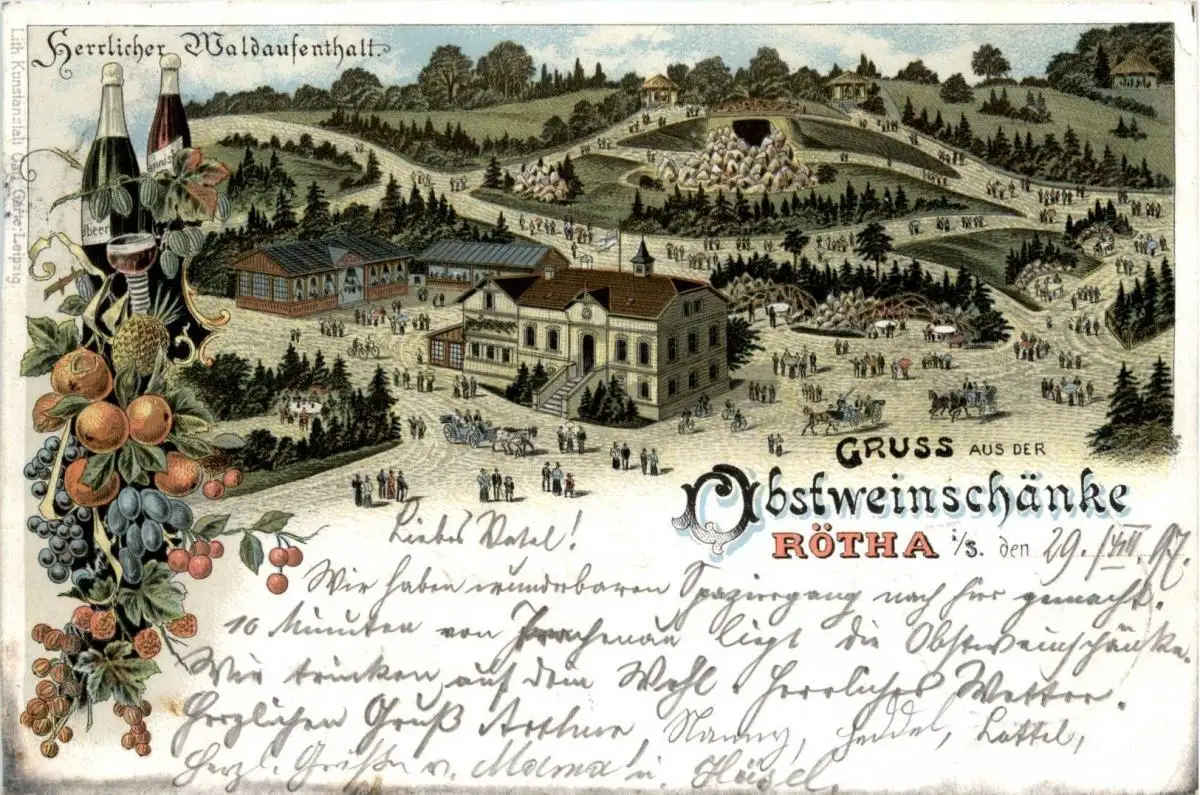 Herrlicher Waldaufenthalt.
Lith. Kunstanstalt Carl Garte, Leipzig
annis
lbeer
GRUSS AUS DER
Obstweinschänke
RÖTHA i/S. den 29. VIII 97.
Liebes Vatel!
Wir haben wunderbaren Spaziergang nach hier gemacht.
10 Minuten von liegt die Obstweinschänke.
Wir trinken auf dem Wohl. Herrliches Wetter.
Herzlichen Gruß Arthur, Nanny, Lottel,
Herzl. Grüße v. Mama u.